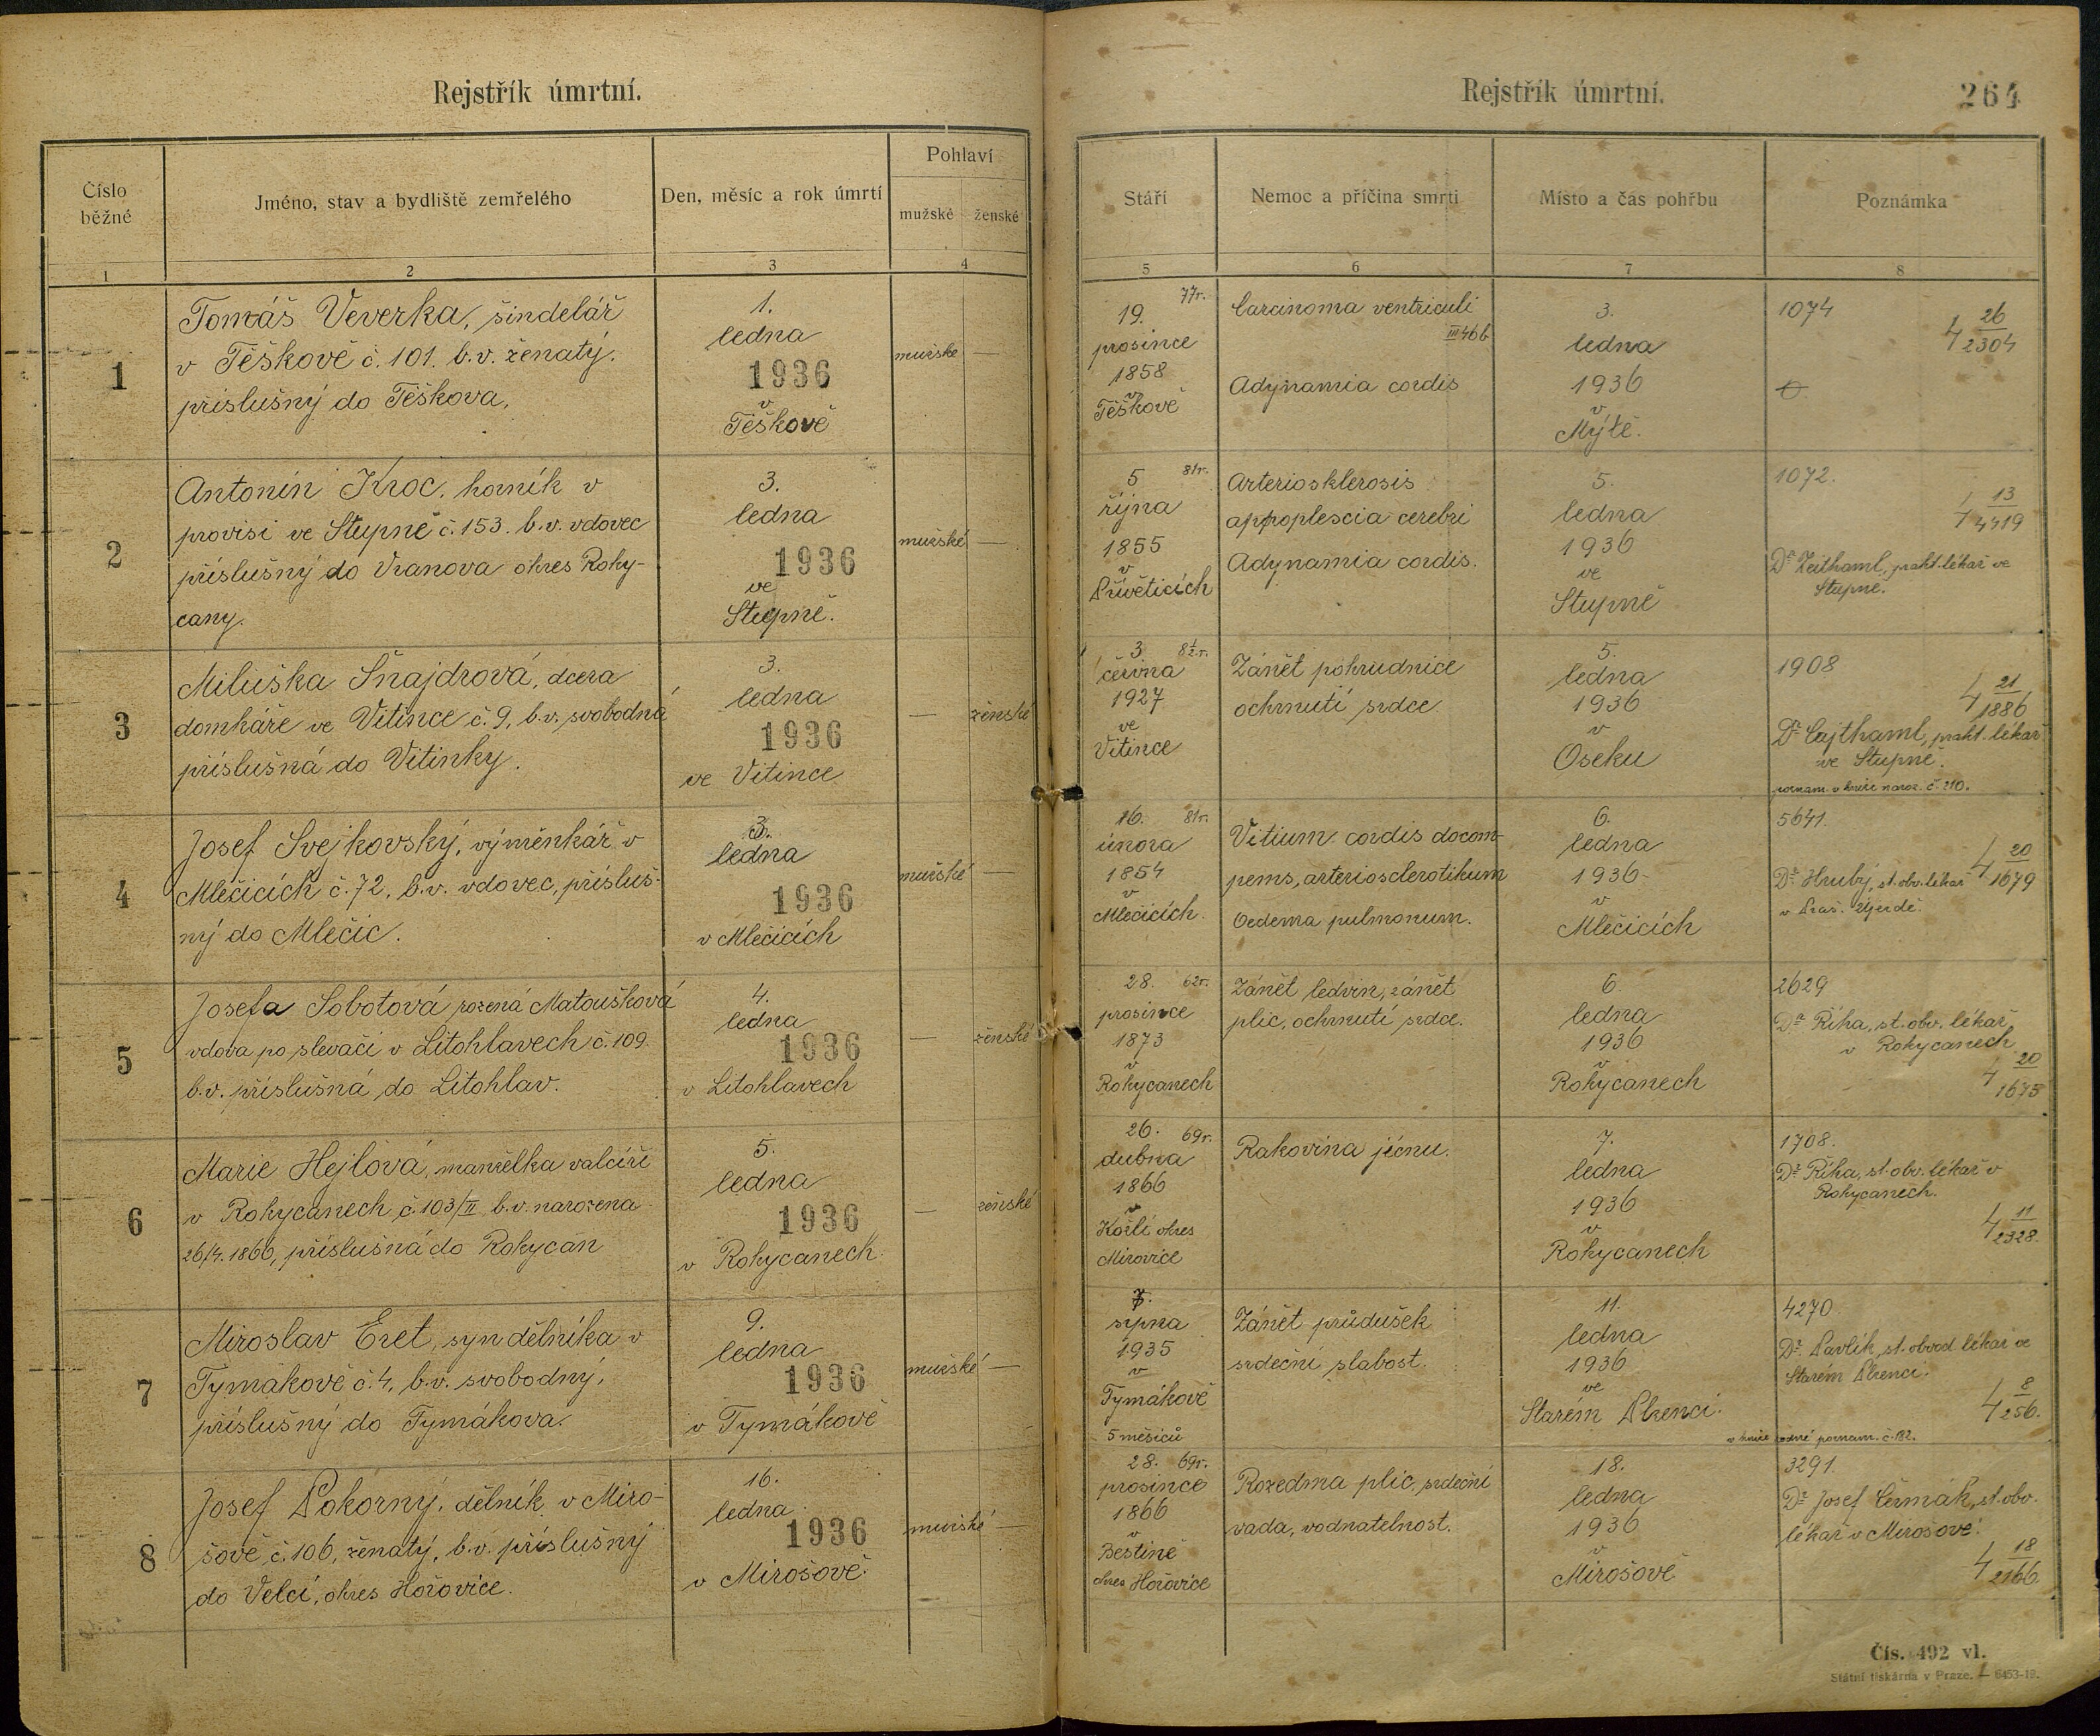 Rejstřík úmrtní.
Číslo běžné
Jméno, stav a bydliště zemřelého
Den, měsíc a rok úmrtí
Pohlaví
mužské
ženské
1
2
3
4
1
Tomáš Veverka, šindelář
v Těškově č. 101. b.v. ženatý.
příslušný do Těškova.
1.
ledna
1936
v
Těškově
mužské
—
2
Antonín Kroc, horník v
provisi ve Stupně č. 153. b.v. vdovec
příslušný do Vranova okres Roky-
cany.
3.
ledna
1936
ve
Stupně.
mužské
—
3
Miluška Šnajdrová, dcera
domkáře ve Vitince č. 9, b.v. svobodná
příslušná do Vitinky.
3.
ledna
1936
ve Vitince
—
ženské
4
Josef Svejkovský, výměnkář v
Mlečicích č. 72, b.v. vdovec, přísluš-
ný do Mlečic.
3.
ledna
1936
v Mlečicích
mužské
—
5
Josefa Sobotová rozená Matoušková
vdova po slevači v Litohlavech č. 109.
b.v. příslušná do Litohlav.
4.
ledna
1936
v Litohlavech
—
ženské
6
Marie Hejlová, manželka valcíře
v Rokycanech č. 103/II b.v. narozena
26/4. 1866, příslušná do Rokycan
5.
ledna
1936
v Rokycanech
—
ženské
7
Miroslav Eret, syn dělníka v
Tymákově č. 4, b.v. svobodný,
příslušný do Tymákova.
9.
ledna
1936
v Tymákově
mužské
—
8
Josef Pokorný, dělník v Miro-
šově č. 106, ženatý, b.v. příslušný
do Velcí, okres Hořovice.
16.
ledna
1936
v Mirošově
mužské
—
Rejstřík úmrtní.
264
Stáří
Nemoc a příčina smrti
Místo a čas pohřbu
Poznámka
5
6
7
8
19. 77r.
prosince
1858
v
Těškově
Carcinoma ventriculi
III 46b
Adynamia cordis
3.
ledna
1936
v
Mýtě.
1074
4 26/2304
5 81r.
října
1855
v
Přívěticích
Arteriosklerosis
approplescia cerebri
Adynamia cordis.
5.
ledna
1936
ve
Stupně
1072.
4 13/4419
Dr Zeithaml, prakt. lékař ve
Stupně.
3. 8½r.
června
1927
ve
Vitince
Zánět pohrudnice
ochrnutí srdce
5.
ledna
1936
v
Oseku
1908
4 21/1886
Dr Cajthaml, prakt. lékař
ve Stupně.
poznam. v knize naroz. č. 210.
16. 81r.
února
1854
v
Mlečicích.
Vitium cordis docom-
pems, arteriosclerotikum
Oedema pulmonum.
6.
ledna
1936
v
Mlečicích
5641.
4 20/1679
Dr Hrubý, st. obv. lékař
v Praš. Újezdě.
28. 62r.
prosince
1873
v
Rokycanech
Zánět ledvin, zánět
plic, ochrnutí srdce.
6.
ledna
1936
v
Rokycanech
2629
Dr Říha, st. obv. lékař
v Rokycanech
4 20/1675
26. 69r.
dubna
1866
v
Kožlí okres
Mirovice
Rakovina jícnu.
7.
ledna
1936
v
Rokycanech
1708.
Dr Říha, st. obv. lékař v
Rokycanech.
4 11/2328.
7.
srpna
1935
v
Tymákově
5 měsíců
Zánět průdušek
srdeční slabost.
11.
ledna
1936
ve
Starém Plzenci.
4270
Dr. Pavlík, st. obvod. lékař ve
Starém Plzenci.
4 8/256.
v knize rodné poznam. č. 182.
28. 69r.
prosince
1866
v
Beštině
okres Hořovice
Rozedma plic, srdeční
vada, vodnatelnost.
18.
ledna
1936
v
Mirošově
3291.
Dr Josef Čermák, st. obv.
lékař v Mirošově.
4 18/2166
Čís. 492 vl.
Státní tiskárna v Praze. — 6453-19.